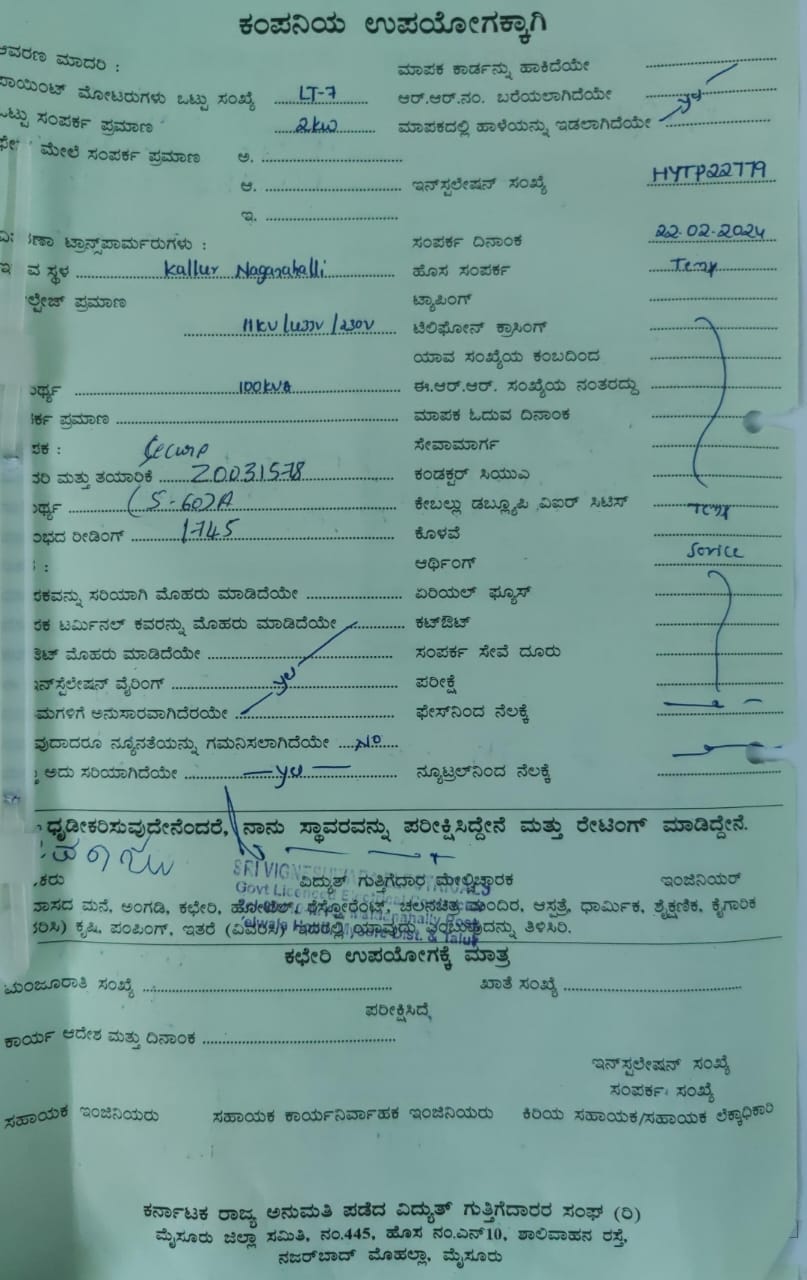 ಕಂಪನಿಯ ಉಪಯೋಗಕ್ಕಾಗಿ
ಆವರಣ ಮಾದರಿ : ಮಾಪಕ ಕಾರ್ಡನ್ನು ಹಾಕಿದೆಯೇ
ಪಾಯಿಂಟ್ ಮೋಟರುಗಳು ಒಟ್ಟು ಸಂಖ್ಯೆ LT-7 ಆರ್.ಆರ್.ನಂ. ಬರೆಯಲಾಗಿದೆಯೇ
ಒಟ್ಟು ಸಂಪರ್ಕ ಪ್ರಮಾಣ 2kw ಮಾಪಕದಲ್ಲಿ ಹಾಳೆಯನ್ನು ಇಡಲಾಗಿದೆಯೇ yes
ಮೇಲೆ ಸಂಪರ್ಕ ಪ್ರಮಾಣ ಅ.
ಆ. ಇನ್‌ಸ್ಪಲೇಷನ್ ಸಂಖ್ಯೆ HYTP22779
ಇ.
ಟ್ರಾನ್ಸ್‌ಪಾರ್ಮರುಗಳು : ಸಂಪರ್ಕ ದಿನಾಂಕ 22-02-2024
ಸ್ಥಳ Kallur Naganahalli ಹೊಸ ಸಂಪರ್ಕ Temp
ಲ್ಟೇಜ್ ಪ್ರಮಾಣ ಟ್ಯಾಪಿಂಗ್
11KV/433V/230V ಟೆಲಿಫೋನ್ ಕ್ರಾಸಿಂಗ್
ಯಾವ ಸಂಖ್ಯೆಯ ಕಂಬದಿಂದ
ರ್ಥ್ಯ 100KVA ಈ.ಆರ್.ಆರ್. ಸಂಖ್ಯೆಯ ನಂತರದ್ದು
ರ್ಕ ಪ್ರಮಾಣ ಮಾಪಕ ಓದುವ ದಿನಾಂಕ
ಪಕ : Secure ಸೇವಾಮಾರ್ಗ
ದರಿ ಮತ್ತು ತಯಾರಿಕೆ 20031578 ಕಂಡಕ್ಟರ್ ಸಿಯುಎ
ರ್ಥ್ಯ (5-60)A ಕೇಬಲ್ಲು ಡಬ್ಲ್ಯೂಪಿ ವಿಐರ್ ಸಿಟಿಸ್ Temp
ಂಭದ ರೀಡಿಂಗ್ 1745 ಕೊಳವೆ
: ಆರ್ಥಿಂಗ್ Sorice
ರಕವನ್ನು ಸರಿಯಾಗಿ ಮೊಹರು ಮಾಡಿದೆಯೇ ಏರಿಯಲ್ ಫ್ಯೂಸ್
ರಕ ಟರ್ಮಿನಲ್ ಕವರನ್ನು ಮೊಹರು ಮಾಡಿದೆಯೇ ಕಟ್‌ಔಟ್
ಟ್ ಮೊಹರು ಮಾಡಿದೆಯೇ ಸಂಪರ್ಕ ಸೇವೆ ದೂರು
ಇನ್‌ಸ್ಪಲೇಷನ್ ವೈರಿಂಗ್ yes ಪರೀಕ್ಷೆ
ಮಗಳಿಗೆ ಅನುಸಾರವಾಗಿದೆರಯೇ ಫೇಸ್‌ನಿಂದ ನೆಲಕ್ಕೆ
ವುದಾದರೂ ನ್ಯೂನತೆಯನ್ನು ಗಮನಿಸಲಾಗಿದೆಯೇ No
ಅದು ಸರಿಯಾಗಿದೆಯೇ yes ನ್ಯೂಟ್ರಲ್‌ನಿಂದ ನೆಲಕ್ಕೆ
ಧೃಡೀಕರಿಸುವುದೇನೆಂದರೆ, ನಾನು ಸ್ಥಾವರವನ್ನು ಪರೀಕ್ಷಿಸಿದ್ದೇನೆ ಮತ್ತು ರೇಟಿಂಗ್ ಮಾಡಿದ್ದೇನೆ.
ಕರು ವಿದ್ಯುತ್ ಗುತ್ತಿಗೆದಾರ ಮೇಲ್ವಿಚಾರಕ ಇಂಜಿನಿಯರ್
ವಾಸದ ಮನೆ, ಅಂಗಡಿ, ಕಛೇರಿ, ಹೋಟೆಲ್, ರೆಸ್ಟೋರೆಂಟ್, ಚಲನಚಿತ್ರಮಂದಿರ, ಆಸ್ಪತ್ರೆ, ಧಾರ್ಮಿಕ, ಶೈಕ್ಷಣಿಕ, ಕೈಗಾರಿಕ
ರಿಸಿ) ಕೃಷಿ, ಪಂಪಿಂಗ್, ಇತರೆ (ವಿವರಿಸಿ) ಇದರಲ್ಲಿ ಯಾವುದು ಎಂಬುದನ್ನು ತಿಳಿಸಿರಿ.
ಕಛೇರಿ ಉಪಯೋಗಕ್ಕೆ ಮಾತ್ರ
ಮಂಜೂರಾತಿ ಸಂಖ್ಯೆ ಖಾತೆ ಸಂಖ್ಯೆ
ಪರೀಕ್ಷಿಸಿದೆ
ಕಾರ್ಯ ಆದೇಶ ಮತ್ತು ದಿನಾಂಕ
ಇನ್‌ಸ್ಪಲೇಷನ್ ಸಂಖ್ಯೆ
ಸಂಪರ್ಕ ಸಂಖ್ಯೆ
ಸಹಾಯಕ ಇಂಜಿನಿಯರು ಸಹಾಯಕ ಕಾರ್ಯನಿರ್ವಾಹಕ ಇಂಜಿನಿಯರು ಕಿರಿಯ ಸಹಾಯಕ/ಸಹಾಯಕ ಲೆಕ್ಕಾಧಿಕಾರಿ
ಕರ್ನಾಟಕ ರಾಜ್ಯ ಅನುಮತಿ ಪಡೆದ ವಿದ್ಯುತ್ ಗುತ್ತಿಗೆದಾರರ ಸಂಘ (ರಿ)
ಮೈಸೂರು ಜಿಲ್ಲಾ ಸಮಿತಿ, ನಂ.445, ಹೊಸ ನಂ.ಎನ್10, ಶಾಲಿವಾಹನ ರಸ್ತೆ,
ನಜರ್‌ಬಾದ್ ಮೊಹಲ್ಲಾ, ಮೈಸೂರು